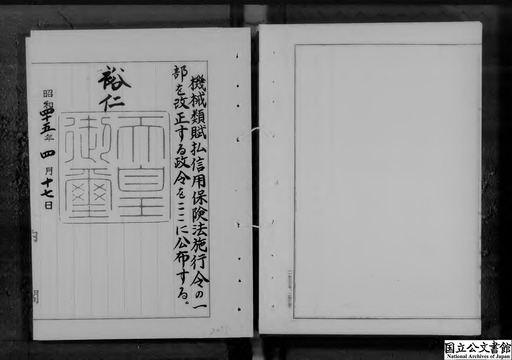 機械類賦払信用保険法施行令の一
部を改正する政令をここに公布する。
裕仁
天皇
御璽
昭和四十五年四月十七日
内閣
国立公文書館
National Archives of Japan